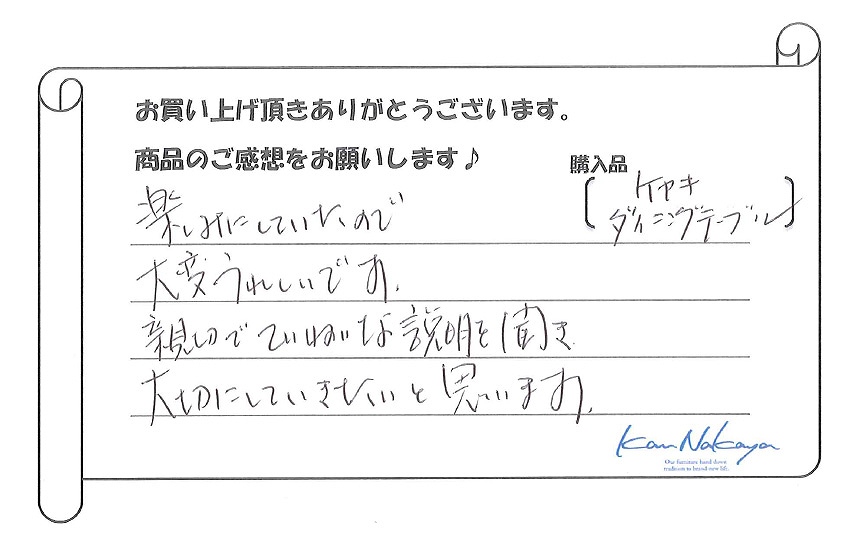 お買い上げ頂きありがとうございます。
商品のご感想をお願いします♪
購入品
ケヤキ
ダイニングテーブル
楽しみにしていたので
大変うれしいです.
親切でていねいな説明を頂き
大切にしていきたいと思います.
Kan Nakaya
Our furniture hand down
tradition to brand new life.